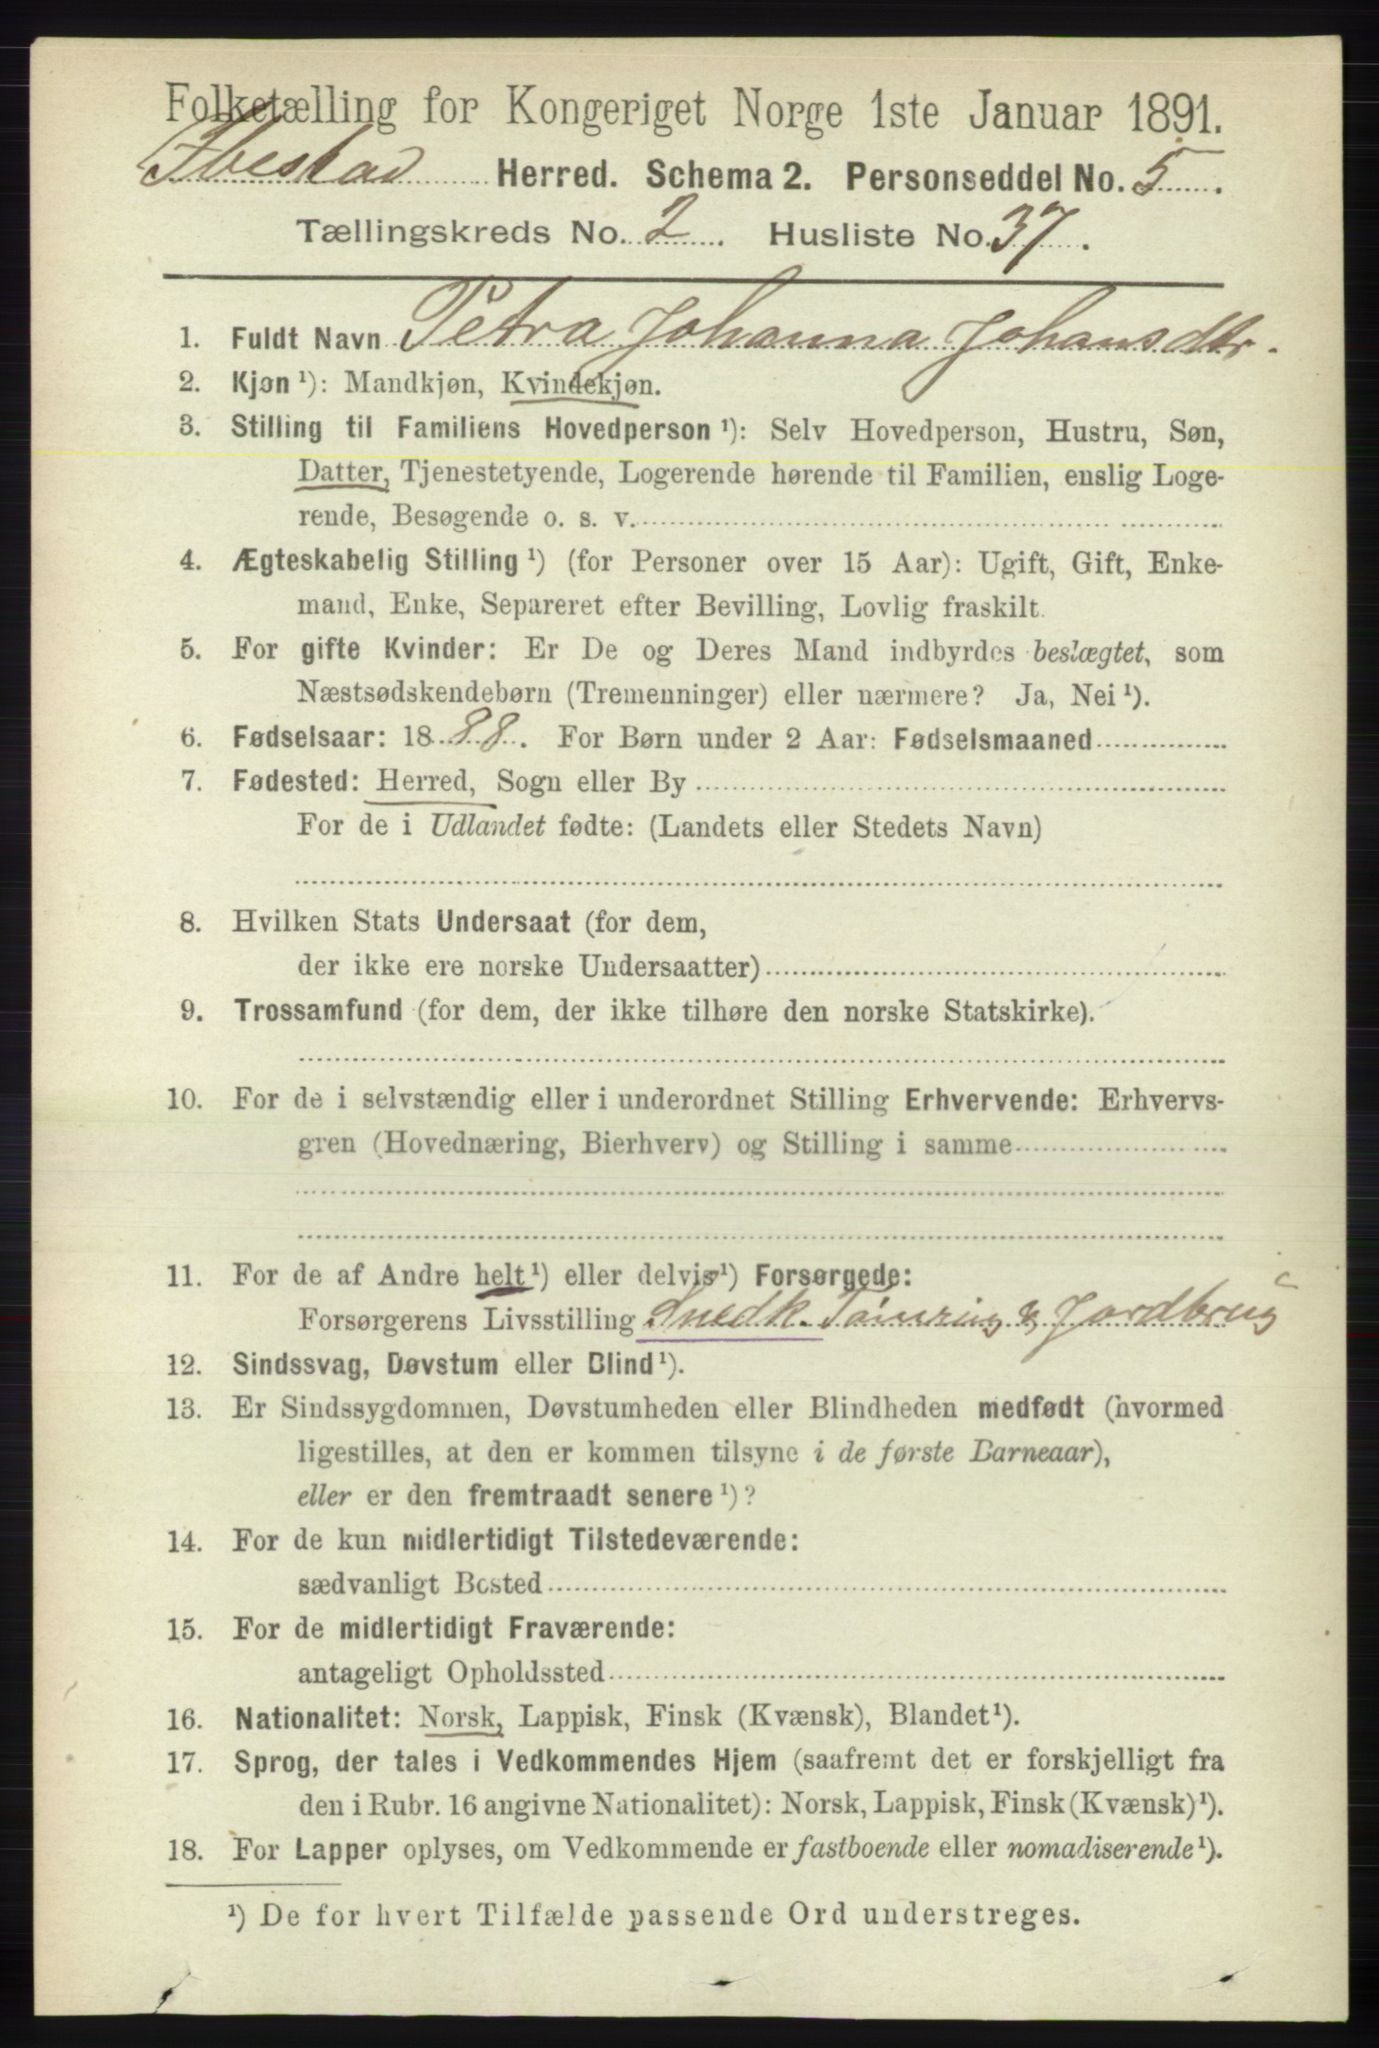 Folketælling for Kongeriget Norge 1ste Januar 1891.
Ibestad Herred. Schema 2. Personseddel No. 5.
Tællingskreds No. 2. Husliste No. 37.
1. Fuldt Navn Petra Johanna Johansdtr.
2. Kjøn ¹): Mandkjøn, Kvindekjøn.
3. Stilling til Familiens Hovedperson ¹): Selv Hovedperson, Hustru, Søn,
Datter, Tjenestetyende, Logerende hørende til Familien, enslig Loge-
rende, Besøgende o. s. v.
4. Ægteskabelig Stilling ¹) (for Personer over 15 Aar): Ugift, Gift, Enke-
mand, Enke, Separeret efter Bevilling, Lovlig fraskilt.
5. For gifte Kvinder: Er De og Deres Mand indbyrdes beslægtet, som
Næstsødskendebørn (Tremenninger) eller nærmere? Ja, Nei ¹).
6. Fødselsaar: 1888. For Børn under 2 Aar: Fødselsmaaned
7. Fødested: Herred, Sogn eller By
For de i Udlandet fødte: (Landets eller Stedets Navn)
8. Hvilken Stats Undersaat (for dem,
der ikke ere norske Undersaatter)
9. Trossamfund (for dem, der ikke tilhøre den norske Statskirke).
10. For de i selvstændig eller i underordnet Stilling Erhvervende: Erhvervs-
gren (Hovednæring, Bierhverv) og Stilling i samme
11. For de af Andre helt ¹) eller delvis ¹) Forsørgede:
Forsørgerens Livsstilling Snedk. Tømring & Jordbrug
12. Sindssvag, Døvstum eller Blind ¹).
13. Er Sindssygdommen, Døvstumheden eller Blindheden medfødt (hvormed
ligestilles, at den er kommen tilsyne i de første Barneaar),
eller er den fremtraadt senere ¹)?
14. For de kun midlertidigt Tilstedeværende:
sædvanligt Bosted
15. For de midlertidigt Fraværende:
antageligt Opholdssted
16. Nationalitet: Norsk, Lappisk, Finsk (Kvænsk), Blandet ¹).
17. Sprog, der tales i Vedkommendes Hjem (saafremt det er forskjelligt fra
den i Rubr. 16 angivne Nationalitet): Norsk, Lappisk, Finsk (Kvænsk) ¹).
18. For Lapper oplyses, om Vedkommende er fastboende eller nomadiserende ¹).
¹) De for hvert Tilfælde passende Ord understreges.